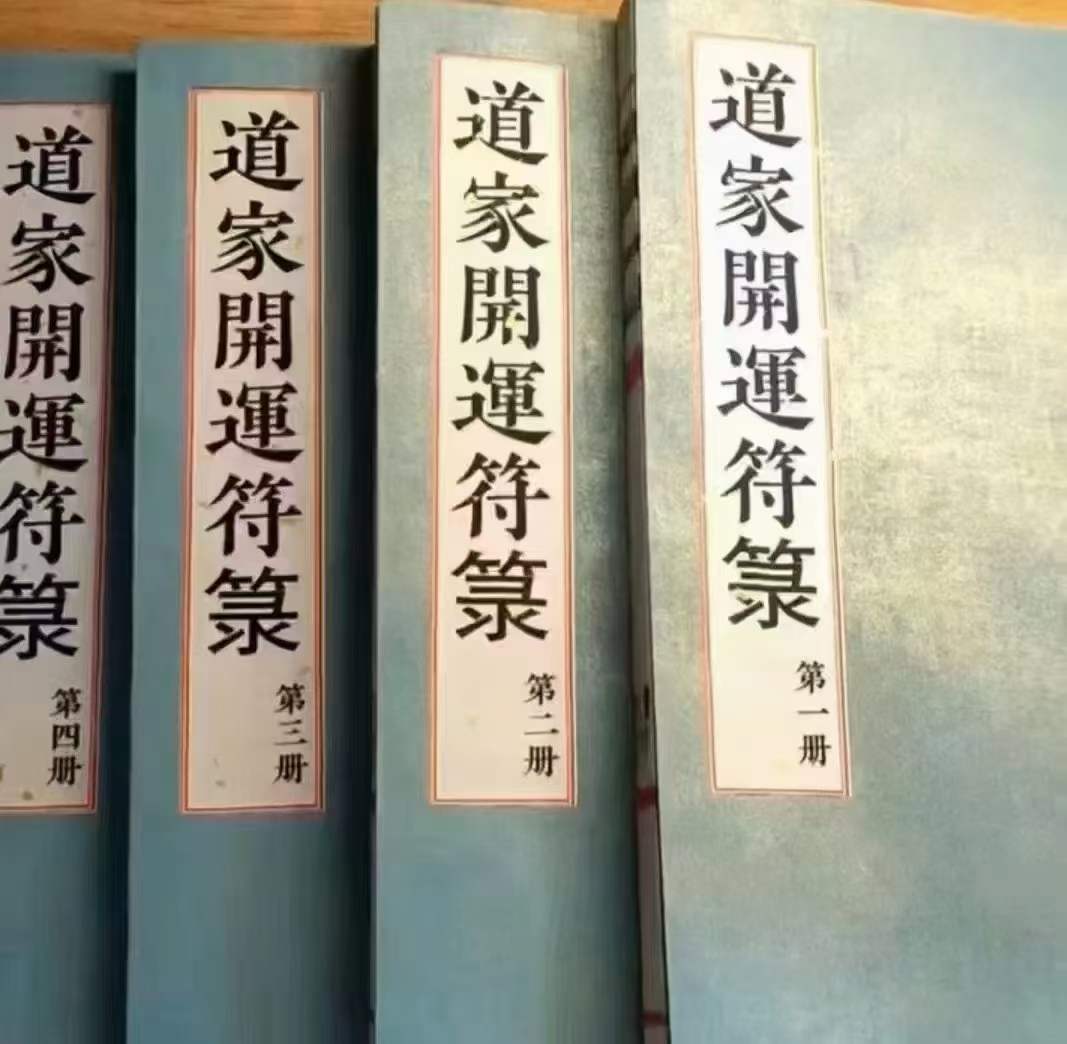 道家開運符箓
第一册
道家開運符箓
第二册
道家開運符箓
第三册
道家開運符箓
第四册